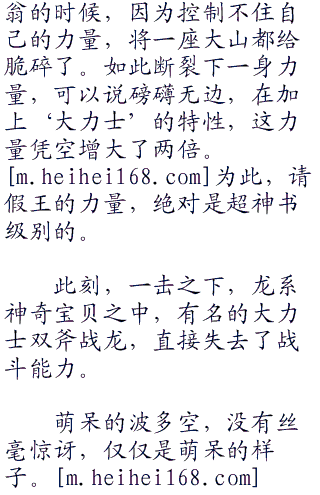 翁的时候，因为控制不住自
己的力量，将一座大山都给
脆碎了。如此断裂下一身力
量，可以说磅礴无边，在加
上‘大力士’的特性，这力
量凭空增大了两倍。
[m.heihei168.com]为此，请
假王的力量，绝对是超神书
级别的。
此刻，一击之下，龙系
神奇宝贝之中，有名的大力
士双斧战龙，直接失去了战
斗能力。
萌呆的波多空，没有丝
毫惊讶，仅仅是萌呆的样
子。[m.heihei168.com]